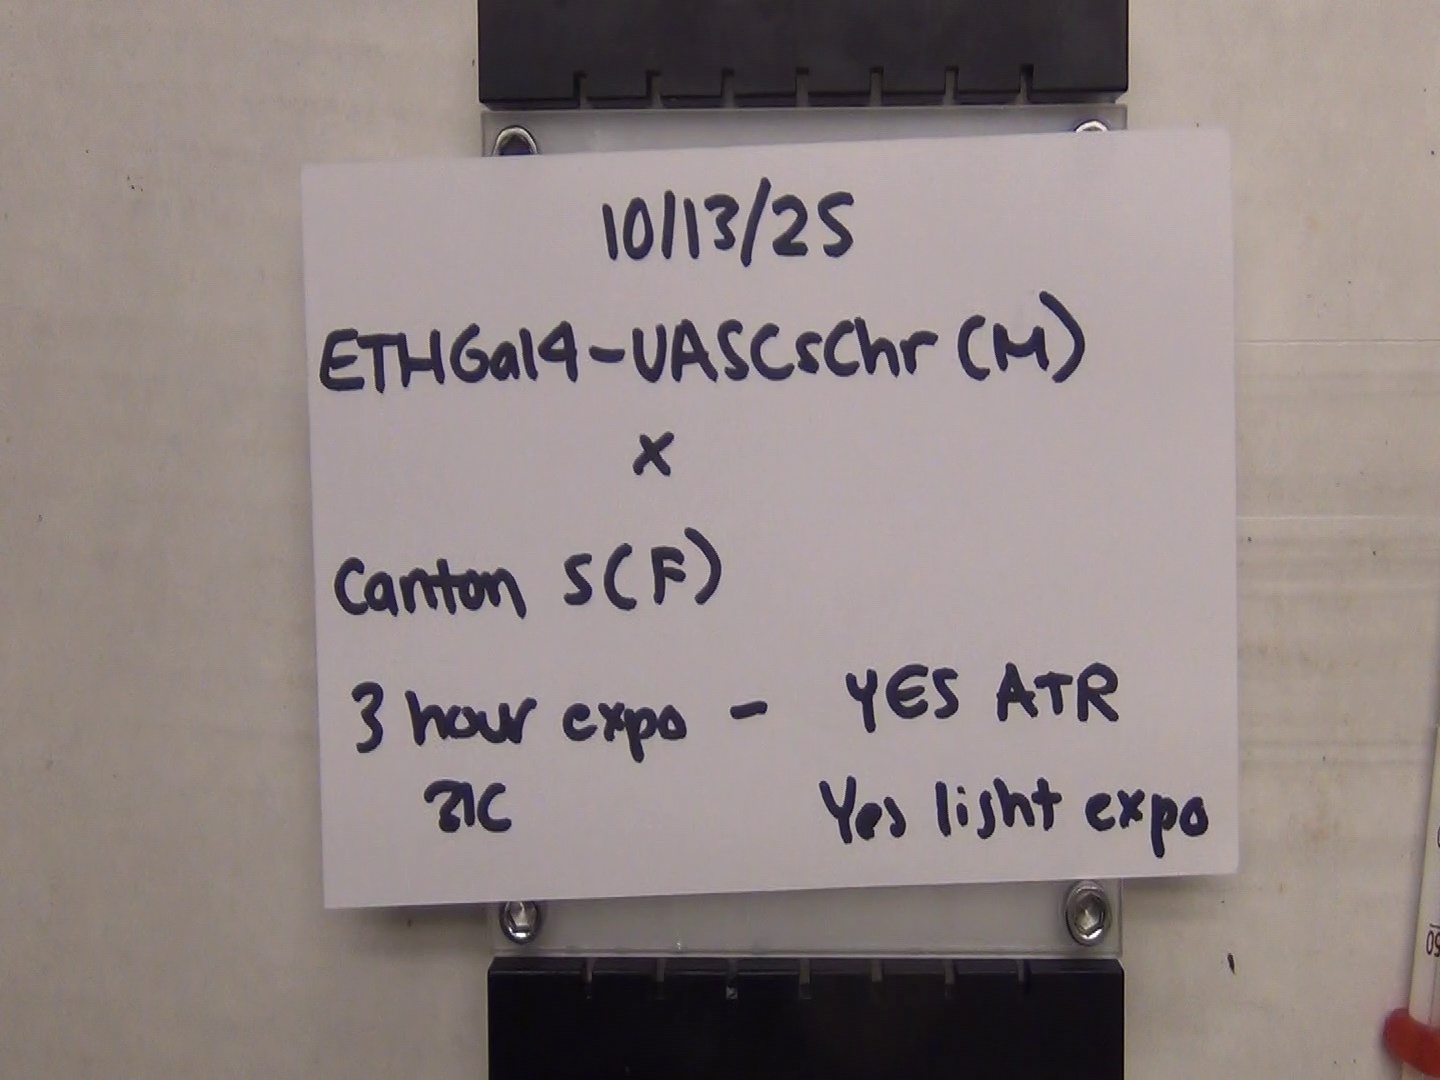 10/13/25
ETHGal4-UASCsChr (M)
x
Canton S(F)
3 hour expo - YES ATR
21C Yes light expo
50